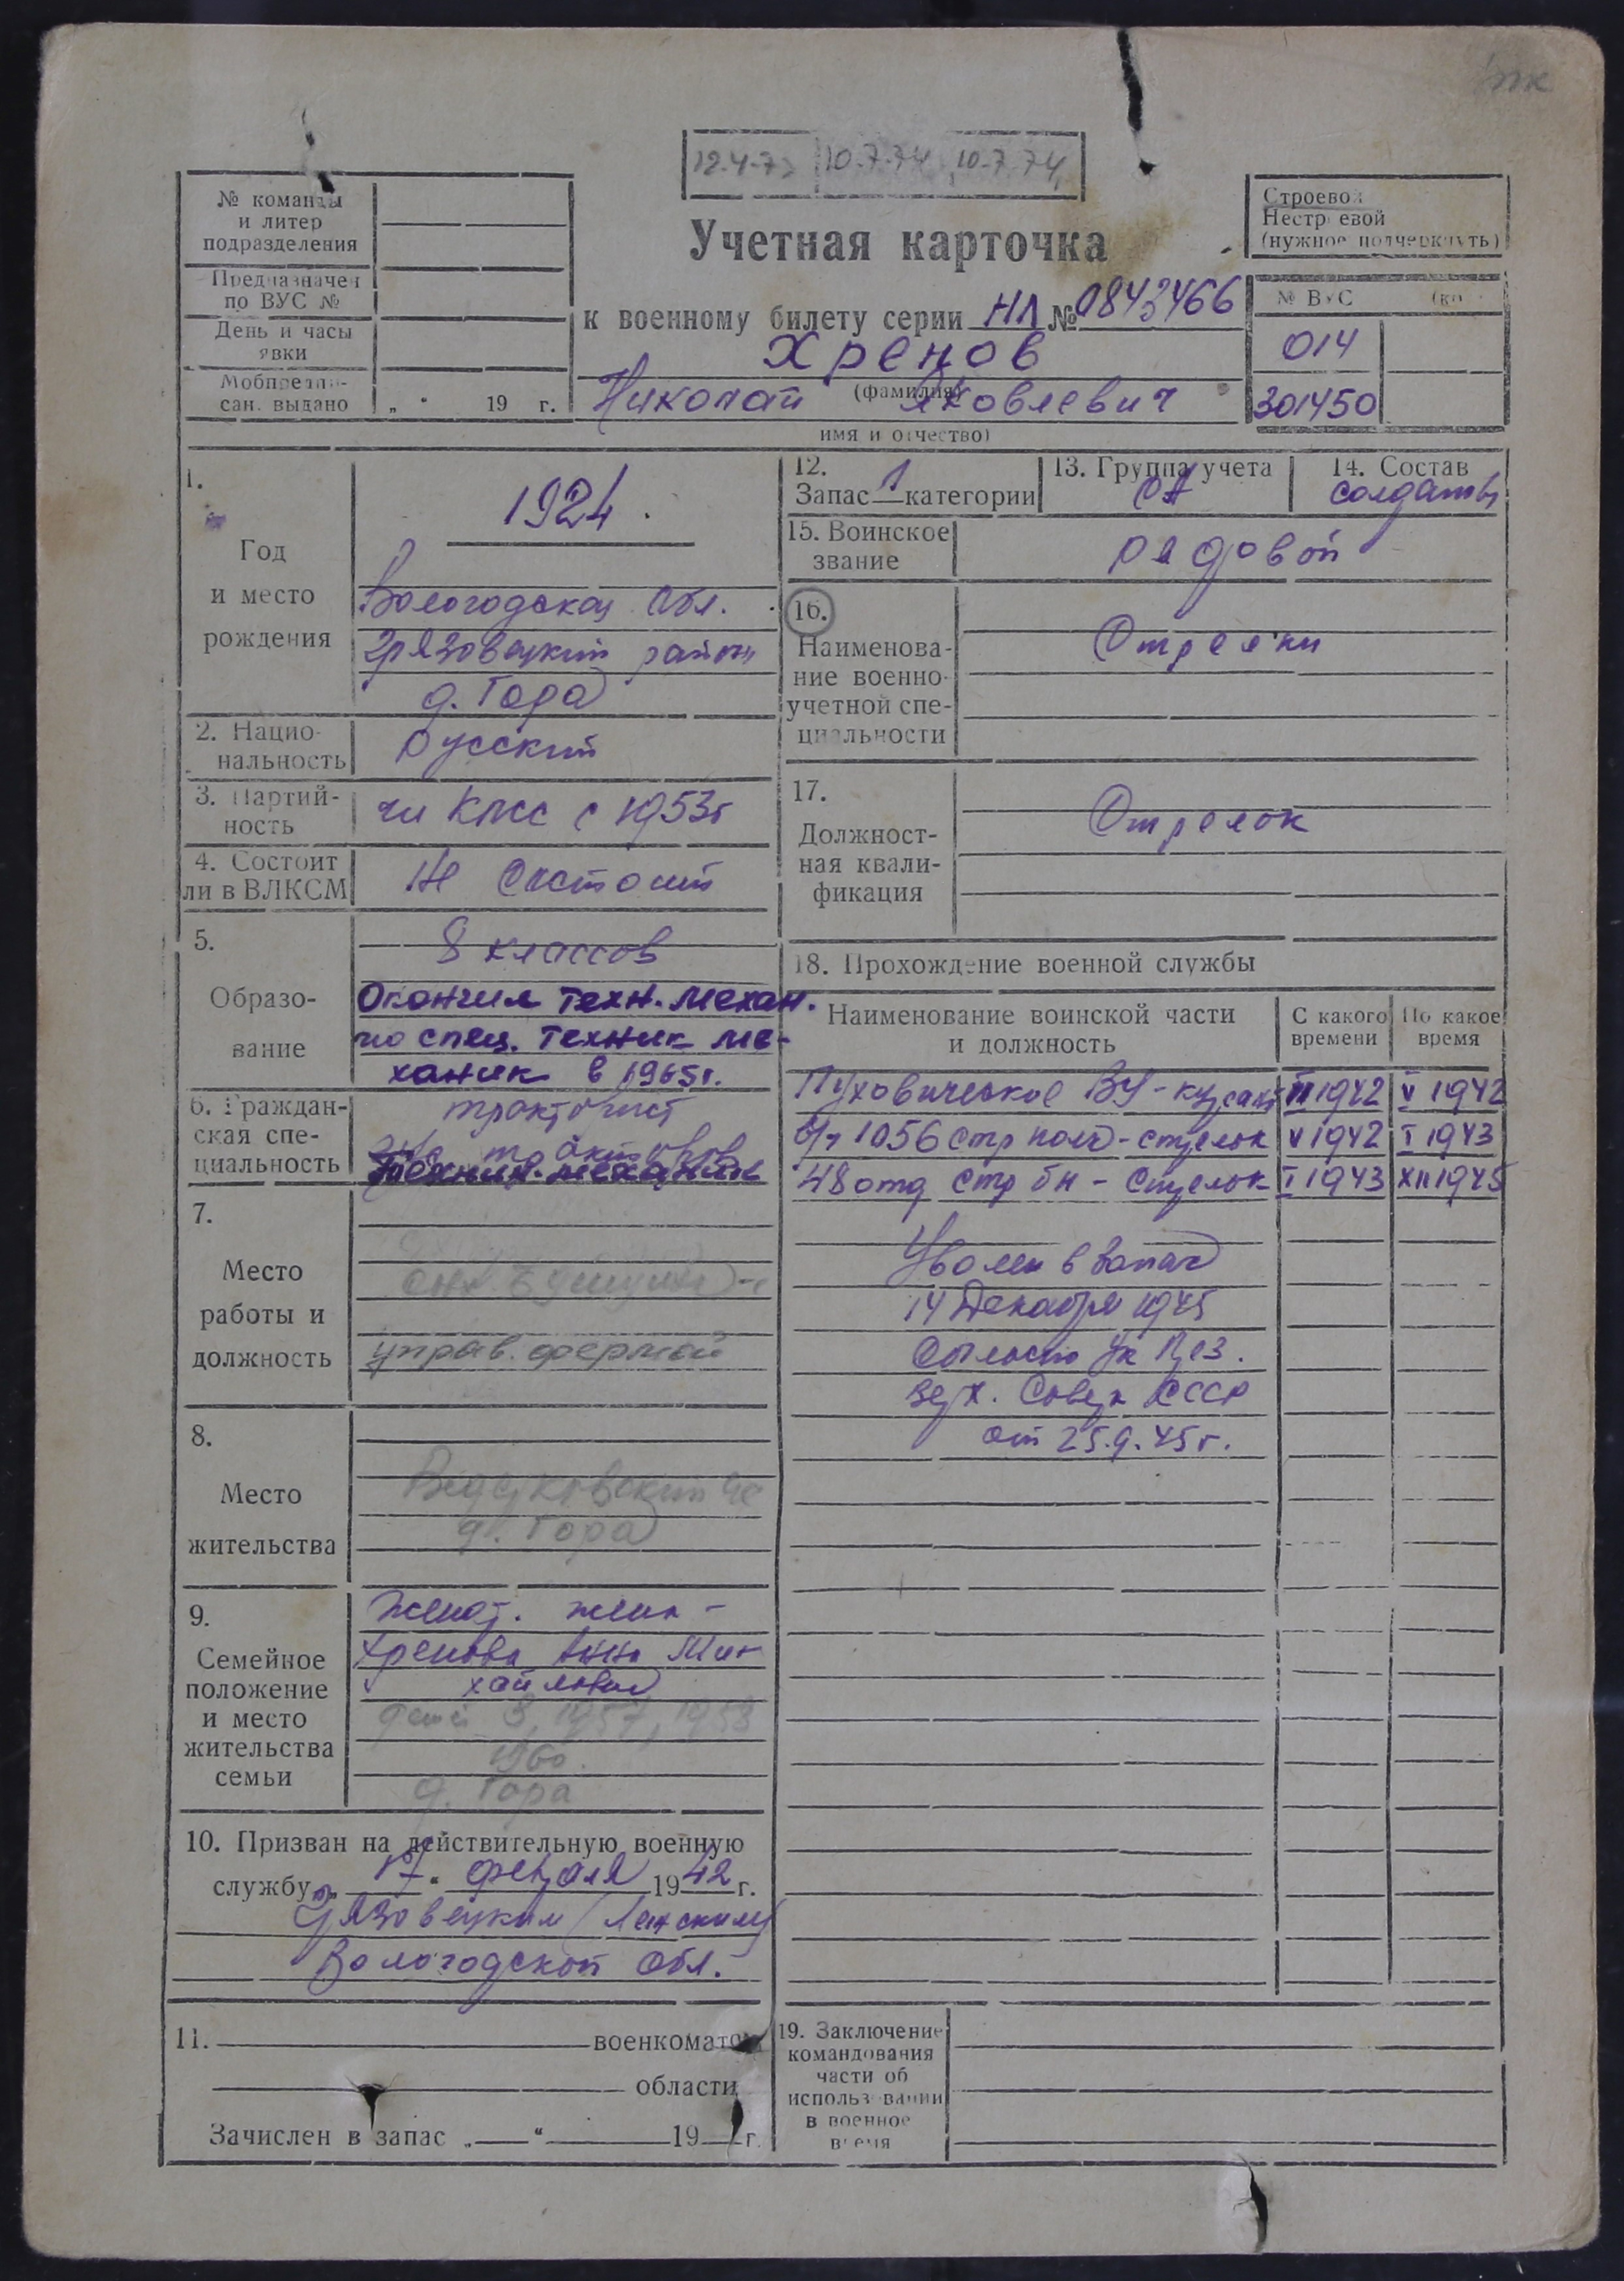 12.4-7 10.7.74 10.7.74
№ команды
и литер
подразделения
Предназначен
по ВУС №
День и часы
явки
Мобпредпи-
сан. выдано „ “ 19 г.
Учетная карточка
к военному билету серии НЛ № 0843466
Хренов
(фамилия)
Николай Яковлевич
имя и отчество)
Строевой
Нестроевой
(нужное подчеркнуть)
№ ВУС
014
301450
1.
Год
и место
рождения
1924.
Вологодская обл.
Грязовецкий район
д. Гора
2. Нацио-
нальность
Русский
3. Партий-
ность
чл КПСС с 1953г
4. Состоит
ли в ВЛКСМ
Не состоит
5.
Образо-
вание
8 классов
Окончил техн. механ.
по спец. техник ме-
ханик в 1965г.
6. Граждан-
ская спе-
циальность
тракторист
Техник-механик
7.
Место
работы и
должность
управ. фермой
8.
Место
жительства
д. Гора
9.
Семейное
положение
и место
жительства
семьи
Женат. жена -
Хренова Анна Ми-
хайловна
дети 3, 1957, 1958
1960.
д. Гора
10. Призван на действительную военную
службу „ 17 “ февраля 1942 г.
Грязовецким
Вологодской обл.
11. военкоматом
области
Зачислен в запас „ “ 19 г.
12.
Запас 1 категории
13. Группа учета
СА
14. Состав
солдаты
15. Воинское
звание
рядовой
16.
Наименова-
ние военно-
учетной спе-
циальности
Стрелки
17.
Должност-
ная квали-
фикация
Стрелок
18. Прохождение военной службы
Наименование воинской части
и должность
С какого
времени
По какое
время
Пуховическое ВУ - курсант III 1942 V 1942
1056 стр полк - стрелок V 1942 I 1943
48 отд стр бн - стрелок I 1943 XII 1945
Уволен в запас
14 Декабря 1945
Согласно Ук През.
Верх. Совета СССР
от 25.9.45г.
19. Заключение
командования
части об
использовании
в военное
время